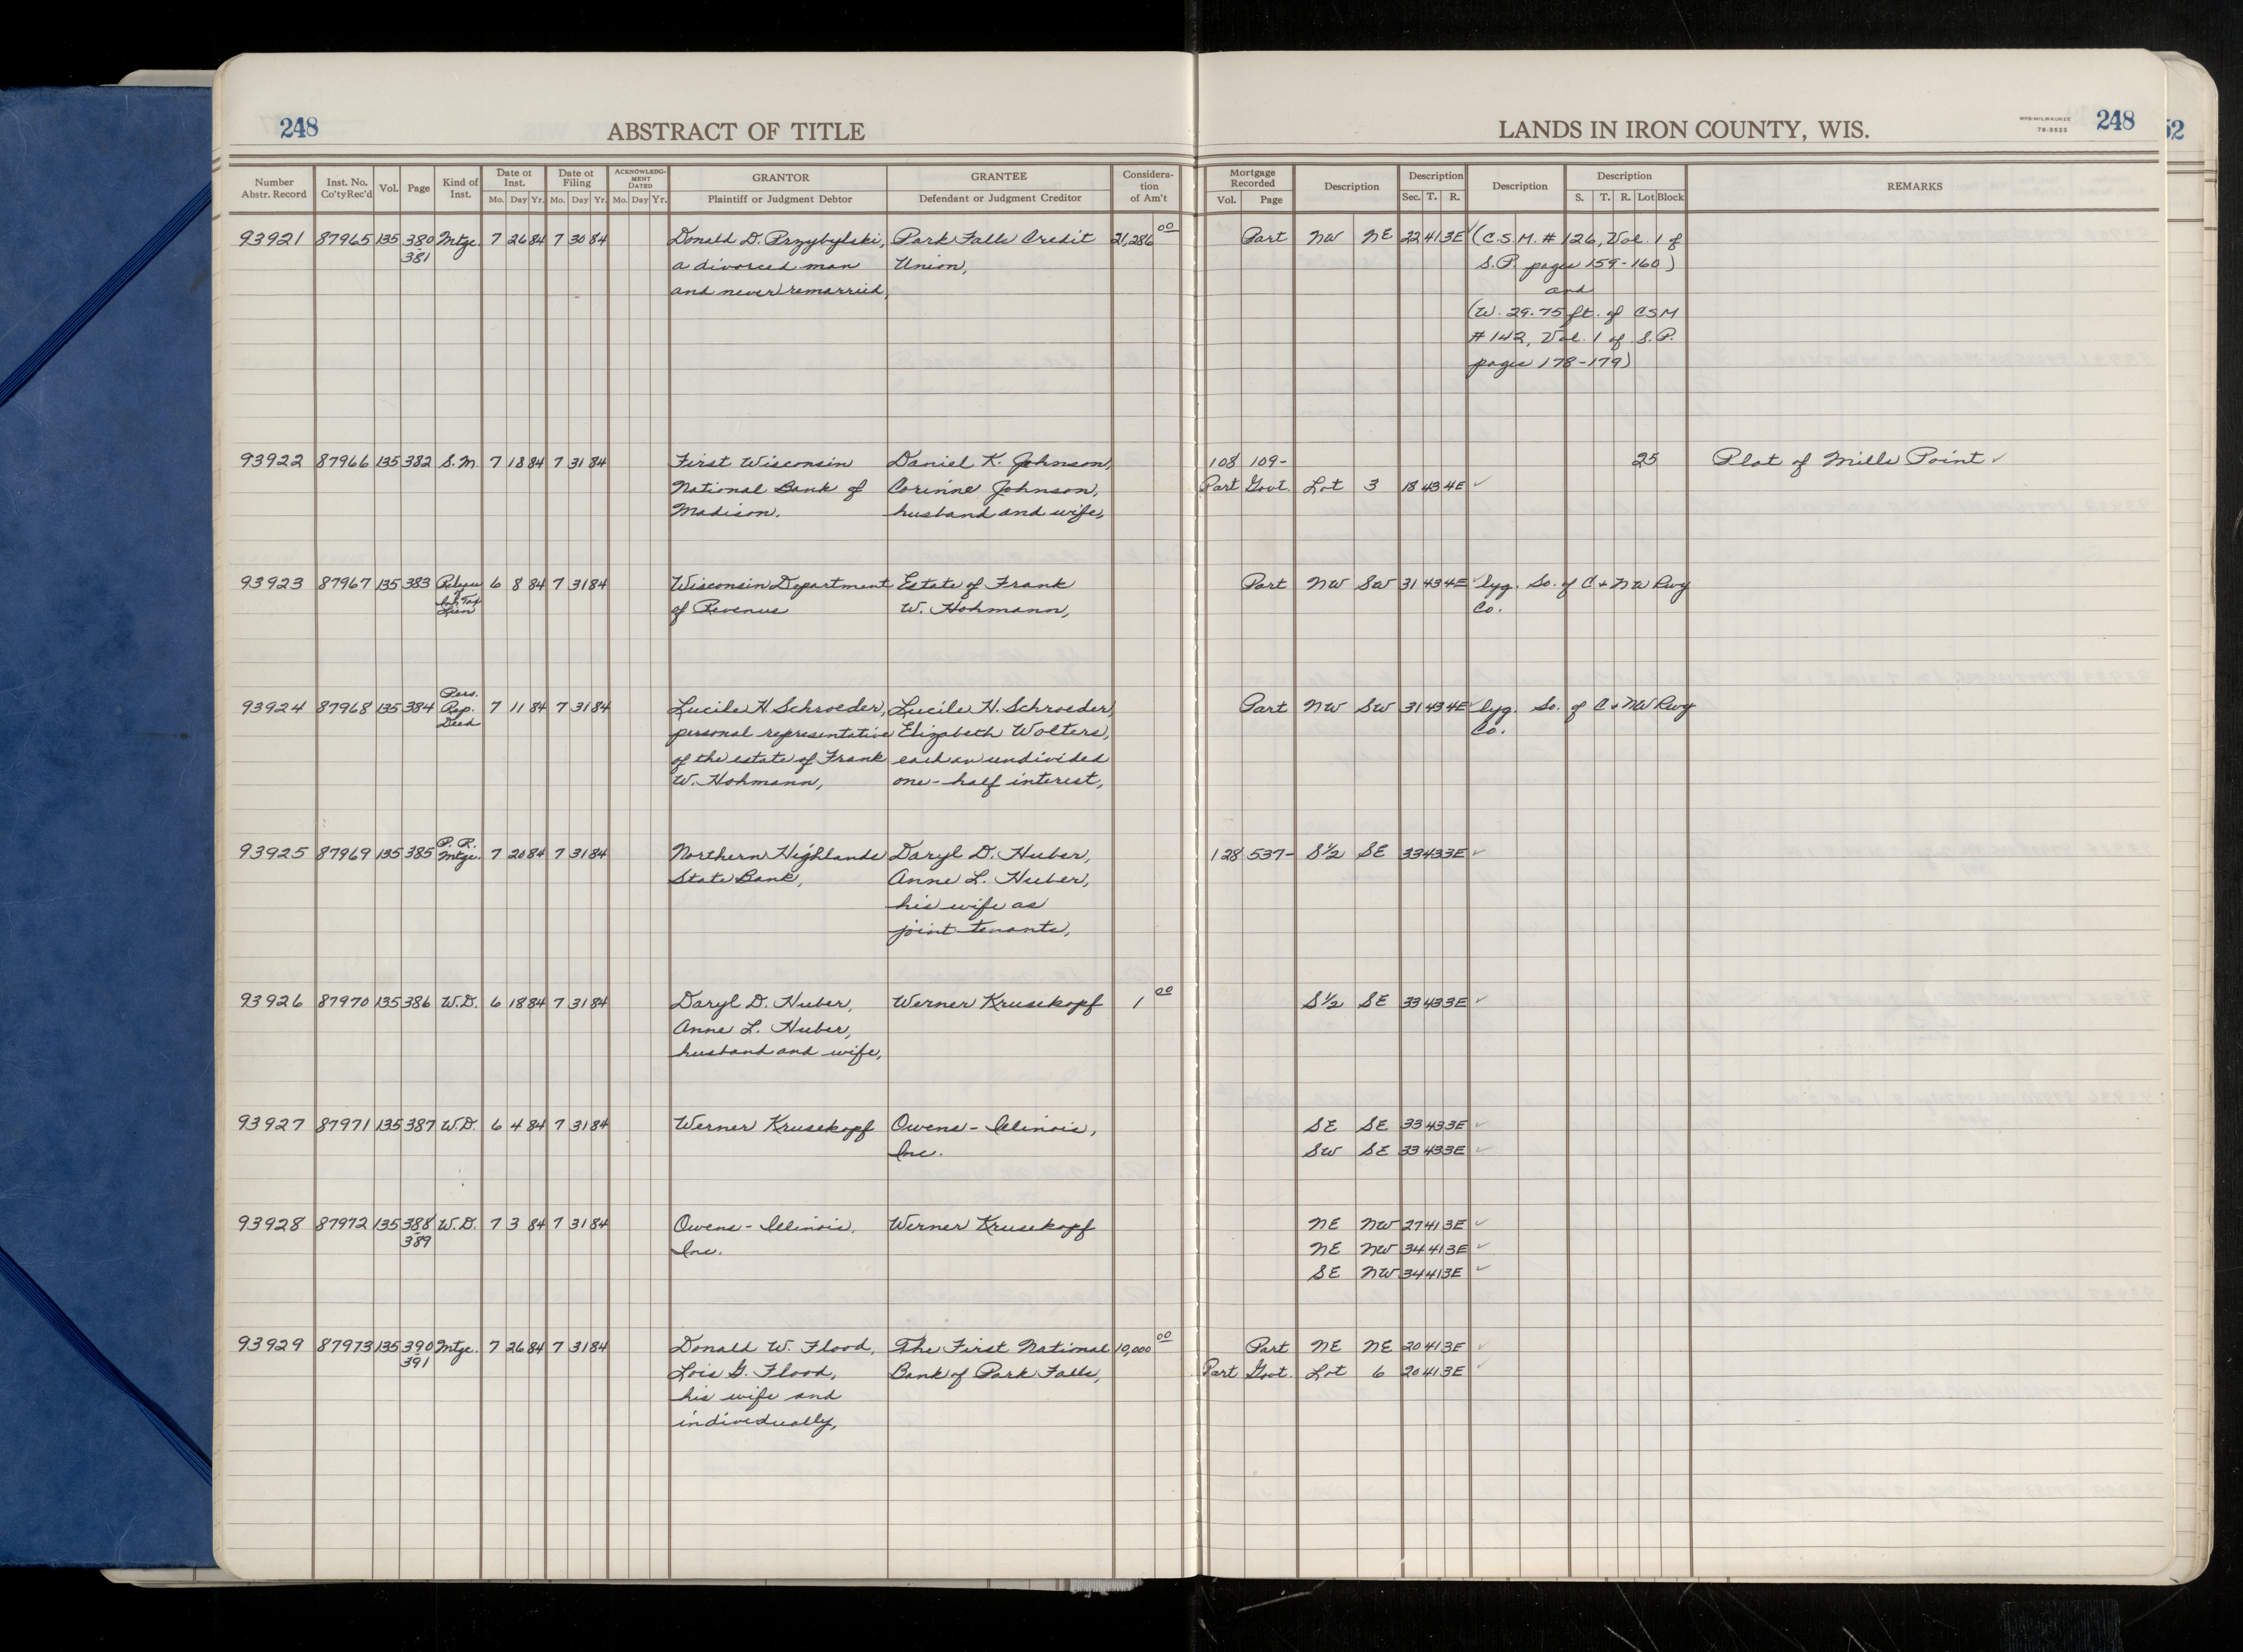 248 ABSTRACT OF TITLE LANDS IN IRON COUNTY, WIS. WPM-MILWAUKEE 78-3535 248 52
Number Abstr. Record Inst. No. Co'tyRec'd Vol. Page Kind of Inst. Date of Inst. Mo. Day Yr. Date of Filing Mo. Day Yr. ACKNOWLEDGMENT DATED Mo. Day Yr. GRANTOR Plaintiff or Judgment Debtor GRANTEE Defendant or Judgment Creditor Consideration of Am't Mortgage Recorded Vol. Page Description Description Sec. T. R. Description Description S. T. R. Lot Block REMARKS
93921 87965 135 380 Mtge. 7 26 84 7 30 84 Donald D. Przybylski, Park Falls Credit 21,286 00 Part NW NE 22 41 3E (C.S.M. # 126, Vol. 1 of
381 a divorced man Union, S.P. pages 159-160)
and never remarried, and
(W. 29.75 ft. of CSM
# 142, Vol. 1 of S.P.
pages 178-179)
93922 87966 135 382 S.M. 7 18 84 7 31 84 First Wisconsin Daniel K. Johnson, 108 109- 25 Plat of Mills Point ✓
National Bank of Corinne Johnson, Part Govt. Lot 3 18 43 4E ✓
Madison. husband and wife,
93923 87967 135 383 Release of Inh. Tax Lien 6 8 84 7 31 84 Wisconsin Department Estate of Frank Part NW SW 31 43 4E ✓ lyg. So. of C + NW Rwy
of Revenue W. Hohmann, Co.
93924 87968 135 384 Pers. Rep. Deed 7 11 84 7 31 84 Lucile H. Schroeder, Lucile H. Schroeder, Part NW SW 31 43 4E ✓ lyg. So. of C + NW Rwy
personal representative Elizabeth Wolters, Co.
of the estate of Frank each an undivided
W. Hohmann, one-half interest,
93925 87969 135 385 P. R. Mtge. 7 20 84 7 31 84 Northern Highlands Daryl D. Huber, 128 537- S½ SE 33 43 3E ✓
State Bank, Anne L. Huber,
his wife as
joint tenants,
93926 87970 135 386 W.D. 6 18 84 7 31 84 Daryl D. Huber, Werner Krusekopf 1 00 S½ SE 33 43 3E ✓
Anne L. Huber,
husband and wife,
93927 87971 135 387 W.D. 6 4 84 7 31 84 Werner Krusekopf Owens-Illinois, SE SE 33 43 3E ✓
Inc. SW SE 33 43 3E ✓
93928 87972 135 388 W.D. 7 3 84 7 31 84 Owens-Illinois, Werner Krusekopf NE NW 27 41 3E ✓
389 Inc. NE NW 34 41 3E ✓
SE NW 34 41 3E ✓
93929 87973 135 390 Mtge. 7 26 84 7 31 84 Donald W. Flood, The First National 10,000 00 Part NE NE 20 41 3E ✓
391 Lois G. Flood, Bank of Park Falls, Part Govt. Lot 6 20 41 3E ✓
his wife and
individually,